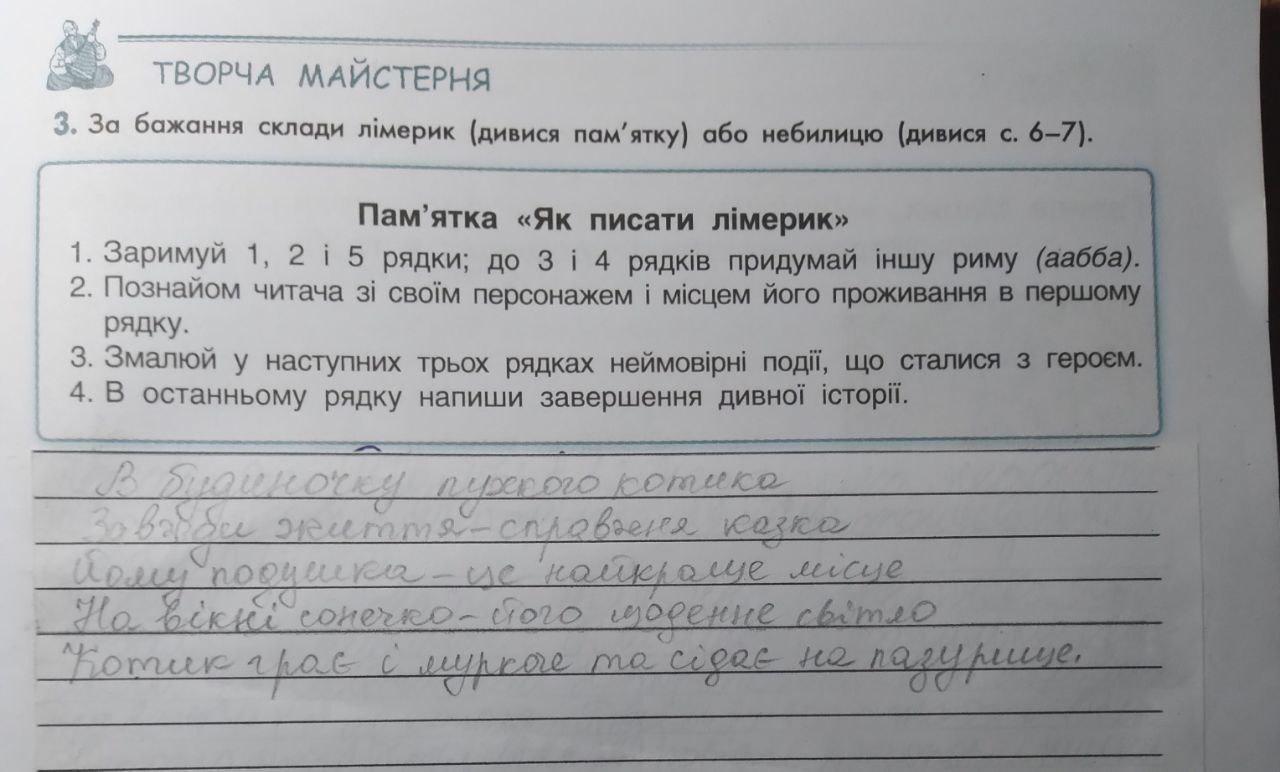 ТВОРЧА МАЙСТЕРНЯ
3. За бажання склади лімерик (дивися пам'ятку) або небилицю (дивися с. 6–7).
Пам'ятка «Як писати лімерик»
1. Заримуй 1, 2 і 5 рядки; до 3 і 4 рядків придумай іншу риму (аабба).
2. Познайом читача зі своїм персонажем і місцем його проживання в першому
рядку.
3. Змалюй у наступних трьох рядках неймовірні події, що сталися з героєм.
4. В останньому рядку напиши завершення дивної історії.
В будиночку пухкого котика
Завжди життя – справженя казка
Йому подушка – це найкраще місце
На вікні сонечко – його щоденне світло
Котик грає і муркає та сідає на пазурище.